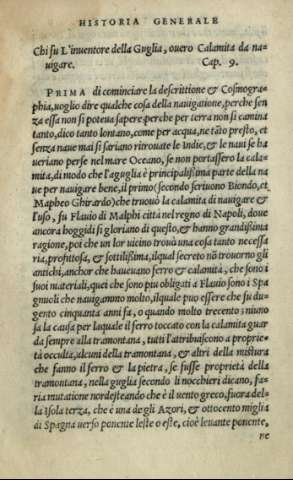 HISTORIA GENERALE
Chi fu L'inuentore della Guglia, ouero Calamita da na-
uigare. Cap. 9.
PRIMA di cominciare la descrittione & Cosmogra-
phia, uoglio dire qualche cosa della nauigatione, perche sen
za essa non si poteua sapere perche per terra non si camina
tanto, dico tanto lontano, come per acqua, ne tāto presto, et
senza naue mai si sariano ritrouate le Indie, & le naui se ha
ueriano perse nel mare Oceano, se non portassero la cala-
mita, di modo che l'aguglia è principalissima parte della na
ue per nauigare bene, il primo (secondo scriuono Biondo, et
Mapheo Ghirardo) che truouò la calamita di nauigare &
l'uso, fu Flauio di Malphi città nel regno di Napoli, doue
ancora hoggidi si gloriano di questo, & hanno grandissima
ragione, poi che un lor uicino trouò una cosa tanto necessa
ria, profittosa, & sottilissima, il qual secreto nō trouorno gli
antichi, anchor che haueuano ferro & calamita, che sono i
suoi materiali, quei che sono piu obligati a Flauio sono i Spa
gnuoli che nauigammo molto, il quale puo essere che fu du-
gento cinquanta anni fa, o quando molto trecento; niuno
sa la causa per laquale il ferro toccato con la calamita guar
da sempre alla tramontana, tutti l'attribuiscono a proprie-
tà occulta, alcuni della tramontana, & altri della mistura
che fanno il ferro & la pietra, se fusse proprietà della
tramontana, nella guglia secondo li nocchieri dicano, fa-
ria mutatione nordesteando che è il uento greco, fuora del-
la Isola terza, che è una degli Azori, & ottocento miglia
di Spagna uerso ponente leste o este, cioè leuante ponente,
ne